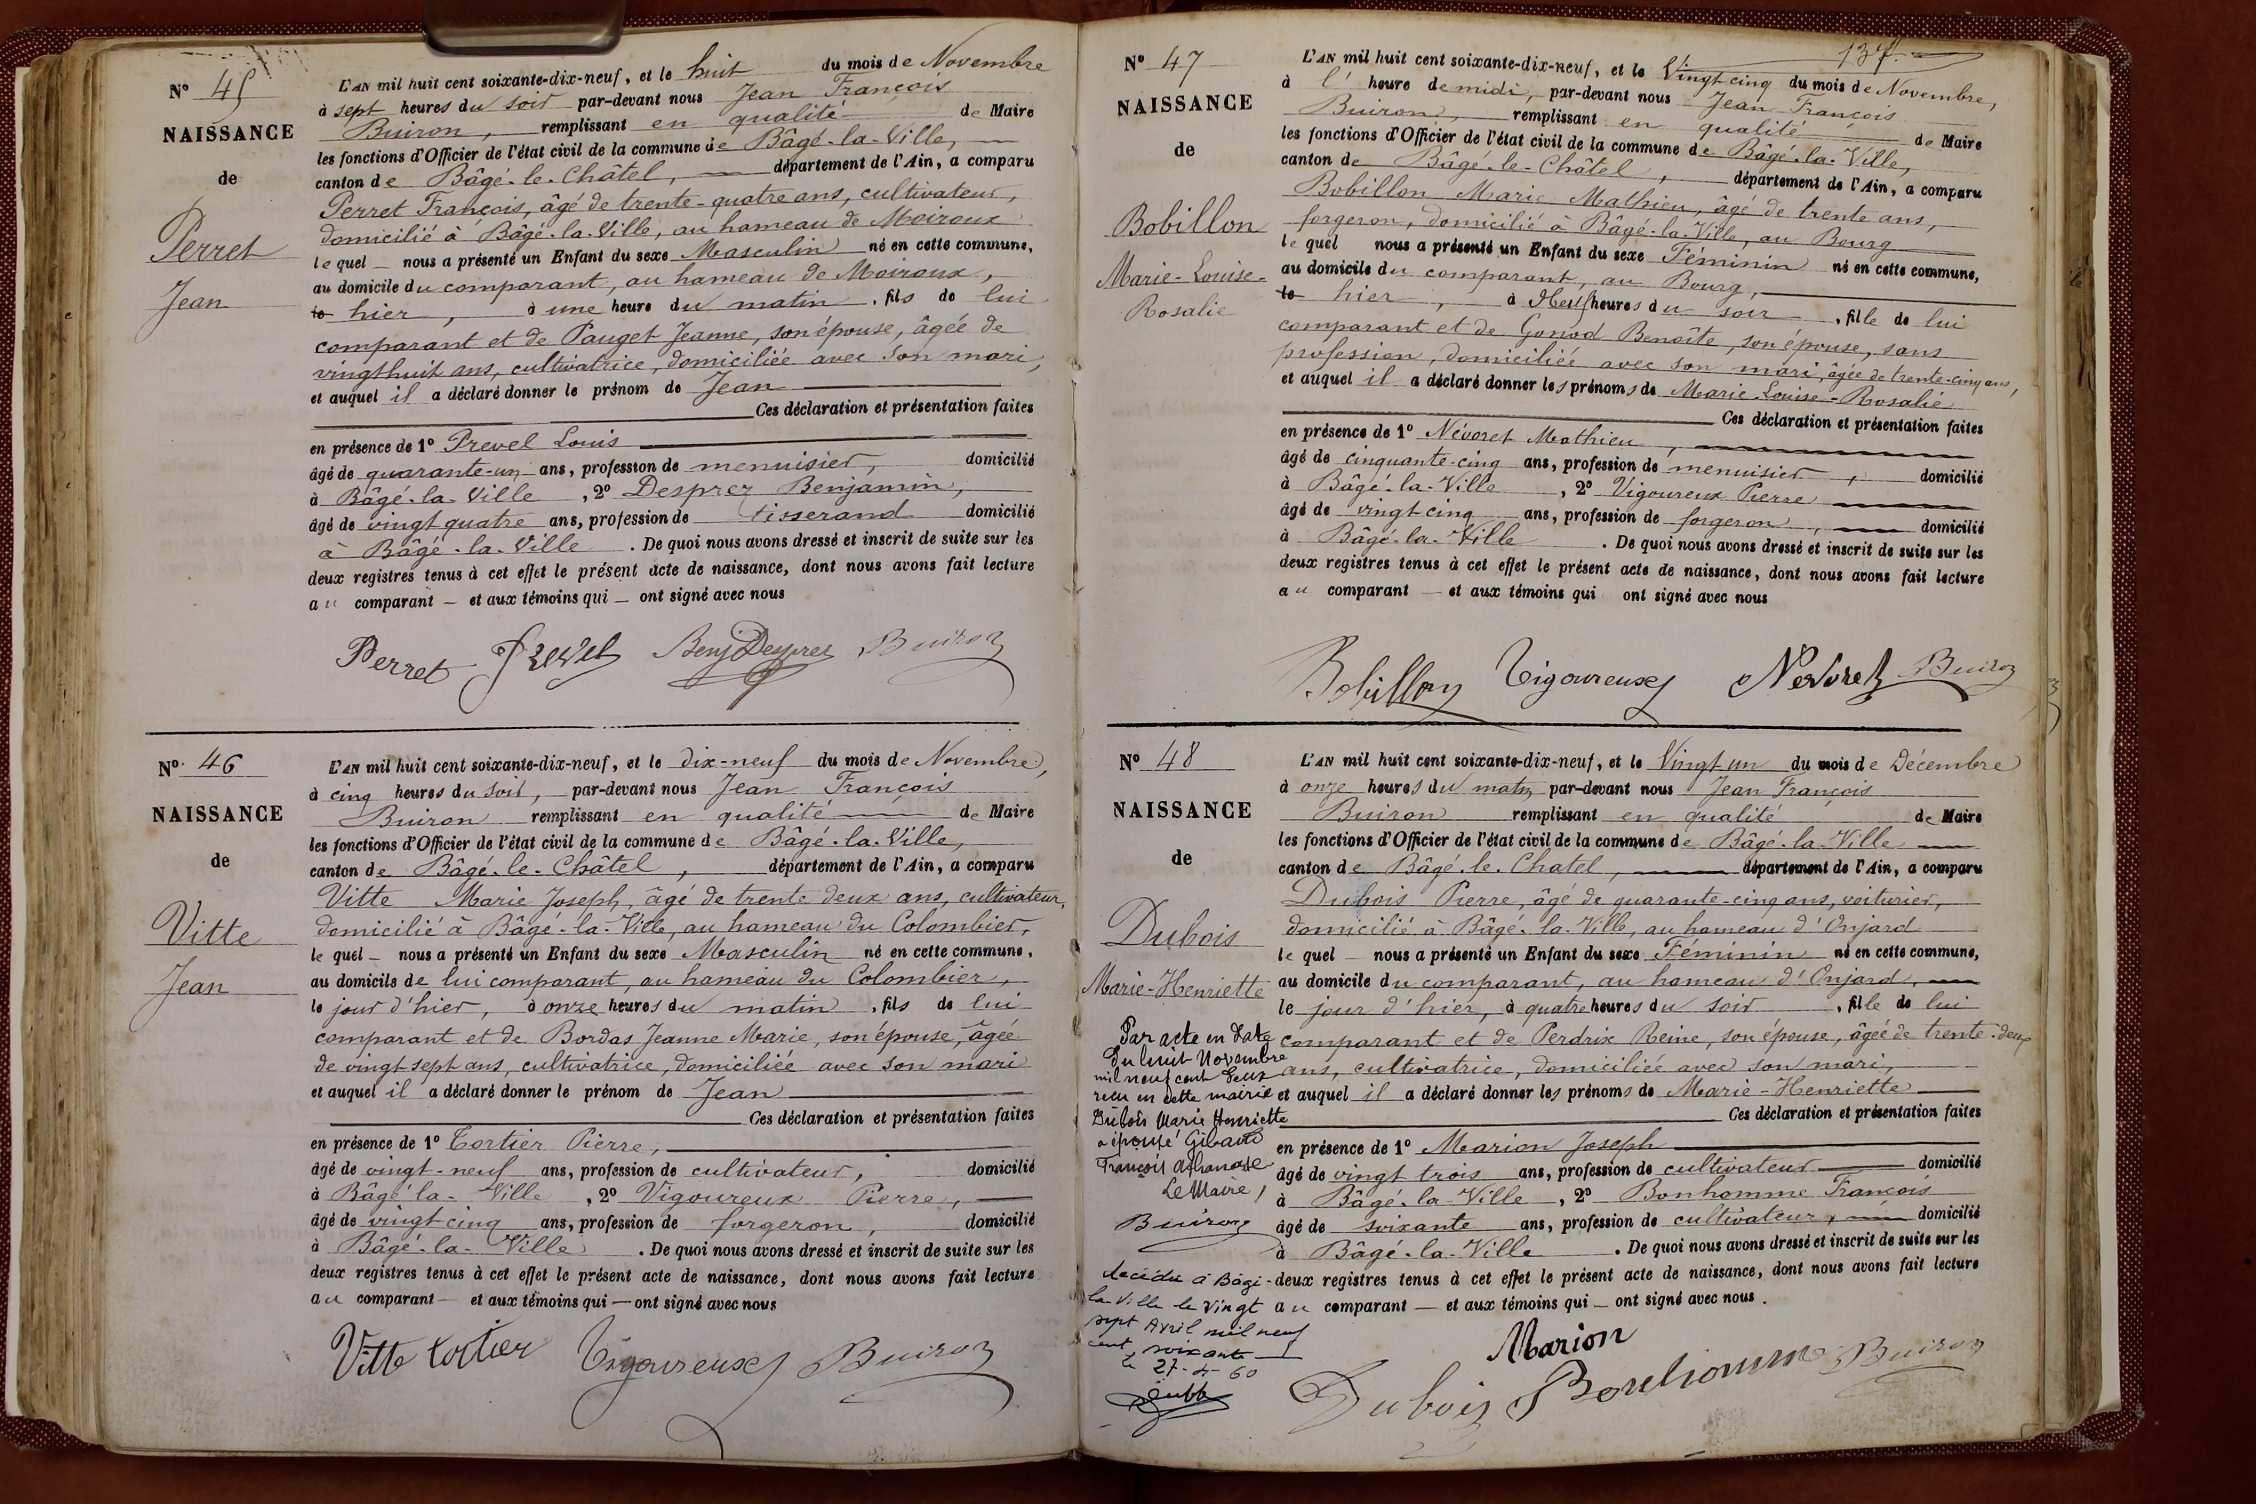 N° 45
NAISSANCE
de
Perret
Jean
L'AN mil huit cent soixante-dix-neuf, et le huit du mois de Novembre
à sept heures du soir par-devant nous Jean François
Buiron, remplissant en qualité de Maire
les fonctions d'Officier de l'état civil de la commune de Bâgé-la-Ville,
canton de Bâgé-le-Châtel, département de l'Ain, a comparu
Perret François, âgé de trente-quatre ans, cultivateur,
domicilié à Bâgé-la-Ville, au hameau de Moiroux
lequel nous a présenté un Enfant du sexe Masculin né en cette commune,
au domicile du comparant, au hameau de Moiroux,
le hier, à une heure du matin, fils de lui
comparant et de Pauget Jeanne, son épouse, âgée de
vingt huit ans, cultivatrice, domiciliée avec son mari,
et auquel il a déclaré donner le prénom de Jean
Ces déclaration et présentation faites
en présence de 1° Prevel Louis
âgé de quarante-un ans, profession de menuisier, domicilié
à Bâgé-la-Ville, 2° Desprez Benjamin,
âgé de vingt quatre ans, profession de tisserand domicilié
à Bâgé-la-Ville. De quoi nous avons dressé et inscrit de suite sur les
deux registres tenus à cet effet le présent acte de naissance, dont nous avons fait lecture
au comparant — et aux témoins qui — ont signé avec nous
Perret Prevel Benj Desprez Buiron
N° 46
NAISSANCE
de
Vitte
Jean
L'AN mil huit cent soixante-dix-neuf, et le dix-neuf du mois de Novembre,
à cinq heures du soir, par-devant nous Jean François
Buiron remplissant en qualité de Maire
les fonctions d'Officier de l'état civil de la commune de Bâgé-la-Ville,
canton de Bâgé-le-Châtel, département de l'Ain, a comparu
Vitte Marie Joseph, âgé de trente deux ans, cultivateur,
domicilié à Bâgé-la-Ville, au hameau du Colombier,
lequel — nous a présenté un Enfant du sexe Masculin né en cette commune,
au domicile de lui comparant, au hameau du Colombier,
le jour d'hier, à onze heures du matin, fils de lui
comparant et de Bordas Jeanne Marie, son épouse, âgée
de vingt-sept ans, cultivatrice, domiciliée avec son mari
et auquel il a déclaré donner le prénom de Jean
Ces déclaration et présentation faites
en présence de 1° Tortier Pierre,
âgé de vingt-neuf ans, profession de cultivateur, domicilié
à Bâgé la-Ville, 2° Vigoureux Pierre,
âgé de vingt cinq ans, profession de forgeron, domicilié
à Bâgé-la-Ville. De quoi nous avons dressé et inscrit de suite sur les
deux registres tenus à cet effet le présent acte de naissance, dont nous avons fait lecture
au comparant — et aux témoins qui — ont signé avec nous
Vitte tortier Vigoureux Buiron
137
N° 47
NAISSANCE
de
Bobillon
Marie-Louise-
Rosalie
L'AN mil huit cent soixante-dix-neuf, et le Vingt cinq du mois de Novembre,
à l' heure de midi, par-devant nous Jean François
Buiron, remplissant en qualité de Maire
les fonctions d'Officier de l'état civil de la commune de Bâgé-la-Ville,
canton de Bâgé-le-Châtel, département de l'Ain, a comparu
Bobillon Marie Mathieu, âgé de trente ans,
forgeron, domicilié à Bâgé-la-Ville, au Bourg
lequel nous a présenté un Enfant du sexe Féminin né en cette commune,
au domicile du comparant, au Bourg,
le hier, à Neuf heures du soir, fille de lui
comparant et de Gonod Benoîte, son épouse, sans
profession, domiciliée avec son mari, âgée de trente-cinq ans,
et auquel il a déclaré donner les prénoms de Marie-Louise-Rosalie
Ces déclaration et présentation faites
en présence de 1° Névoret Mathieu,
âgé de cinquante-cinq ans, profession de menuisier, domicilié
à Bâgé-la-Ville, 2° Vigoureux Pierre
âgé de vingt cinq ans, profession de forgeron, domicilié
à Bâgé-la-Ville. De quoi nous avons dressé et inscrit de suite sur les
deux registres tenus à cet effet le présent acte de naissance, dont nous avons fait lecture
au comparant — et aux témoins qui ont signé avec nous
Bobillon Vigoureux Nevoret Buiron
N° 48
NAISSANCE
de
Dubois
Marie-Henriette
Par acte en date
du huit Novembre
mil neuf cent deux
reçu en cette mairie
Dubois Marie Henriette
a épousé Gibaud
François Athanase
Le Maire,
Buiron
décédée à Bâgé-
la Ville le vingt
sept Avril mil neuf
cent soixante
le 27-4-60
L'AN mil huit cent soixante-dix-neuf, et le Vingt un du mois de Décembre
à onze heures du matin par-devant nous Jean François
Buiron remplissant en qualité de Maire
les fonctions d'Officier de l'état civil de la commune de Bâgé-la-Ville
canton de Bâgé-le-Chatel, département de l'Ain, a comparu
Dubois Pierre, âgé de quarante-cinq ans, voiturier,
domicilié à Bâgé-la-Ville, au hameau d'Onjard
lequel — nous a présenté un Enfant du sexe Féminin né en cette commune,
au domicile du comparant, au hameau d'Onjard,
le jour d'hier, à quatre heures du soir, fille de lui
comparant et de Perdrix Reine, son épouse, âgée de trente-deux
ans, cultivatrice, domiciliée avec son mari,
et auquel il a déclaré donner les prénoms de Marie-Henriette
Ces déclaration et présentation faites
en présence de 1° Marion Joseph
âgé de vingt trois ans, profession de cultivateur domicilié
à Bâgé-la-Ville, 2° Bonhomme François
âgé de soixante ans, profession de cultivateur, domicilié
à Bâgé-la-Ville. De quoi nous avons dressé et inscrit de suite sur les
deux registres tenus à cet effet le présent acte de naissance, dont nous avons fait lecture
au comparant — et aux témoins qui — ont signé avec nous.
Marion
Dubois Bonhomme Buiron